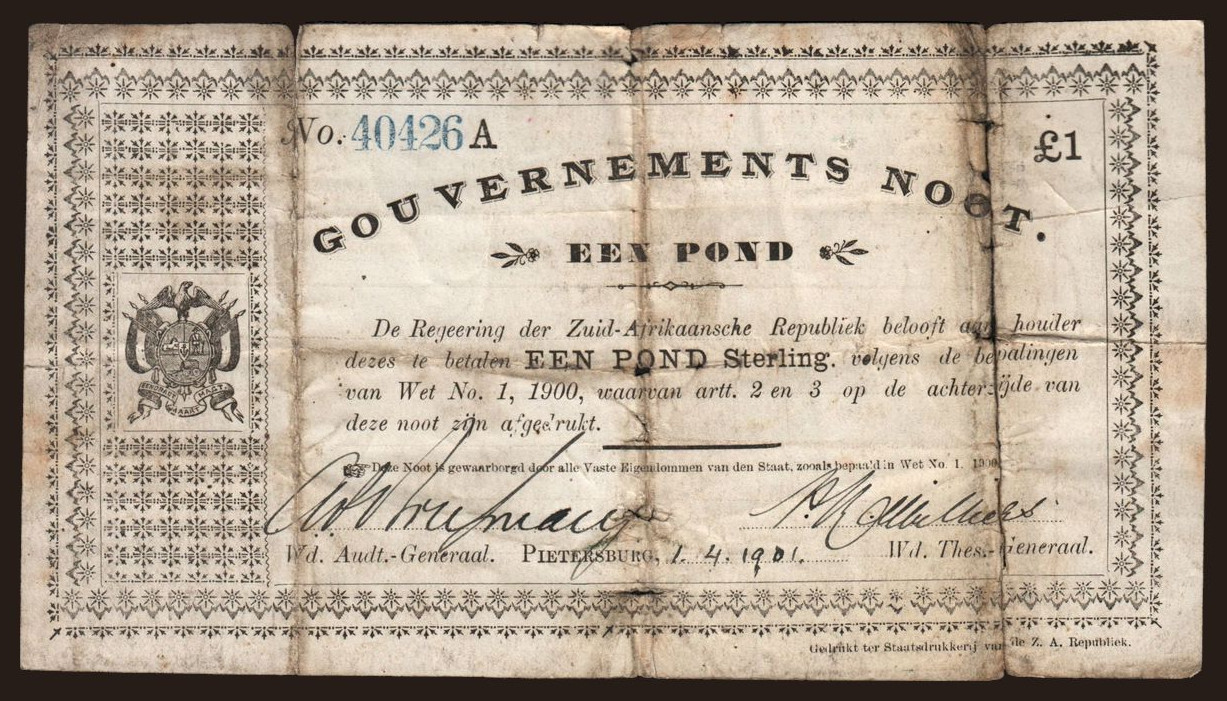 No. 40426 A
£1
GOUVERNEMENTS NOOT.
EEN POND
De Regeering der Zuid-Afrikaansche Republiek belooft aan houder
dezes te betalen EEN POND Sterling. volgens de bepalingen
van Wet No. 1, 1900, waarvan artt. 2 en 3 op de achterzijde van
deze noot zijn afgedrukt.
Deze Noot is gewaarborgd door alle Vaste Eigendommen van den Staat, zooals bepaald in Wet No. 1. 1900
Wd. Audt.-Generaal. PIETERSBURG, 1.4.1901. Wd. Thes.-Generaal.
Gedrukt ter Staatsdrukkerij van de Z. A. Republiek.